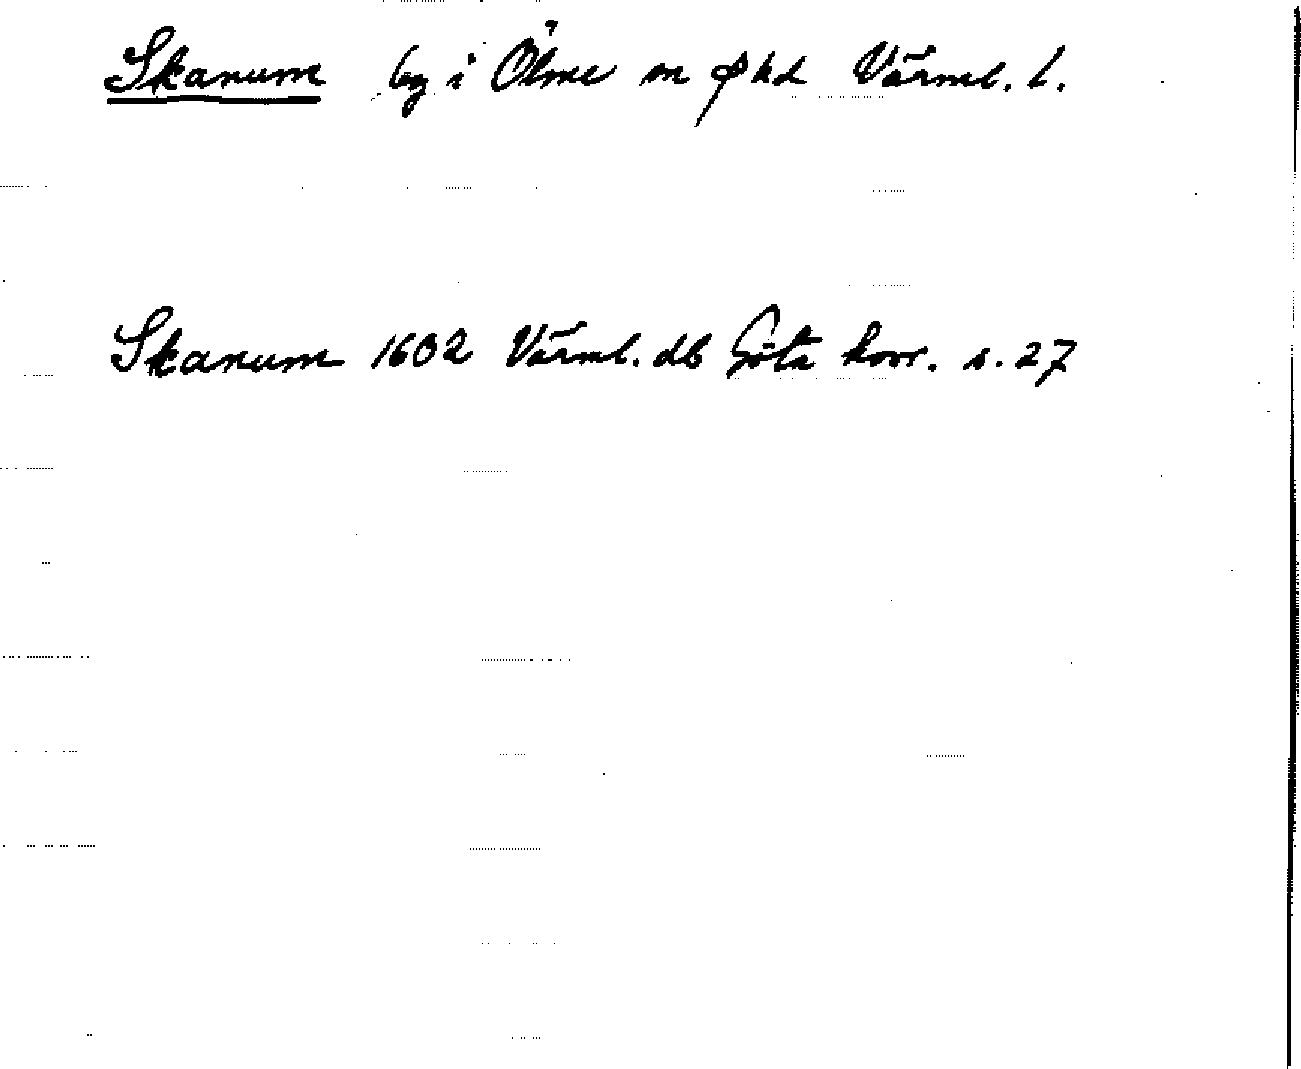 Skanum by i Ölme sn o hd Värml. l.
Skanum 1602 Värml. db Göta hovr. s. 27